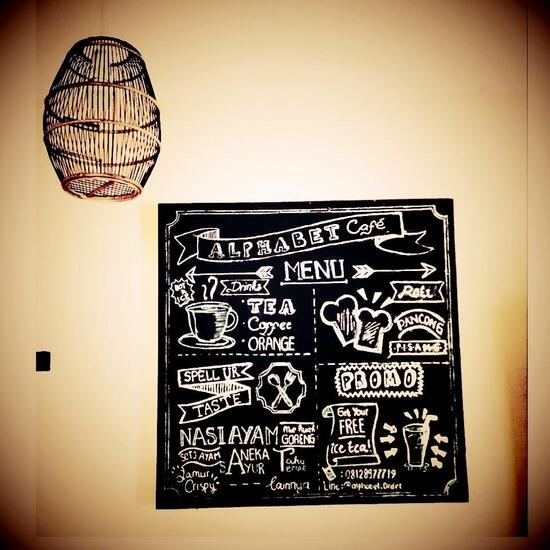 ALPHABET Café
MENU
HOT & ICE
Drinks
TEA
Coffee
ORANGE
Roti
PANCONG
PISANG
SPELL UR
TASTE
NASI AYAM
GORENG
SOTO AYAM
ANEKA
SAYUR
Tahu
Tempe
Jamur
Crispy
lainnya
PROMO
Get Your
FREE
Ice tea!
: 08128977719
Line: @alphabet.Order